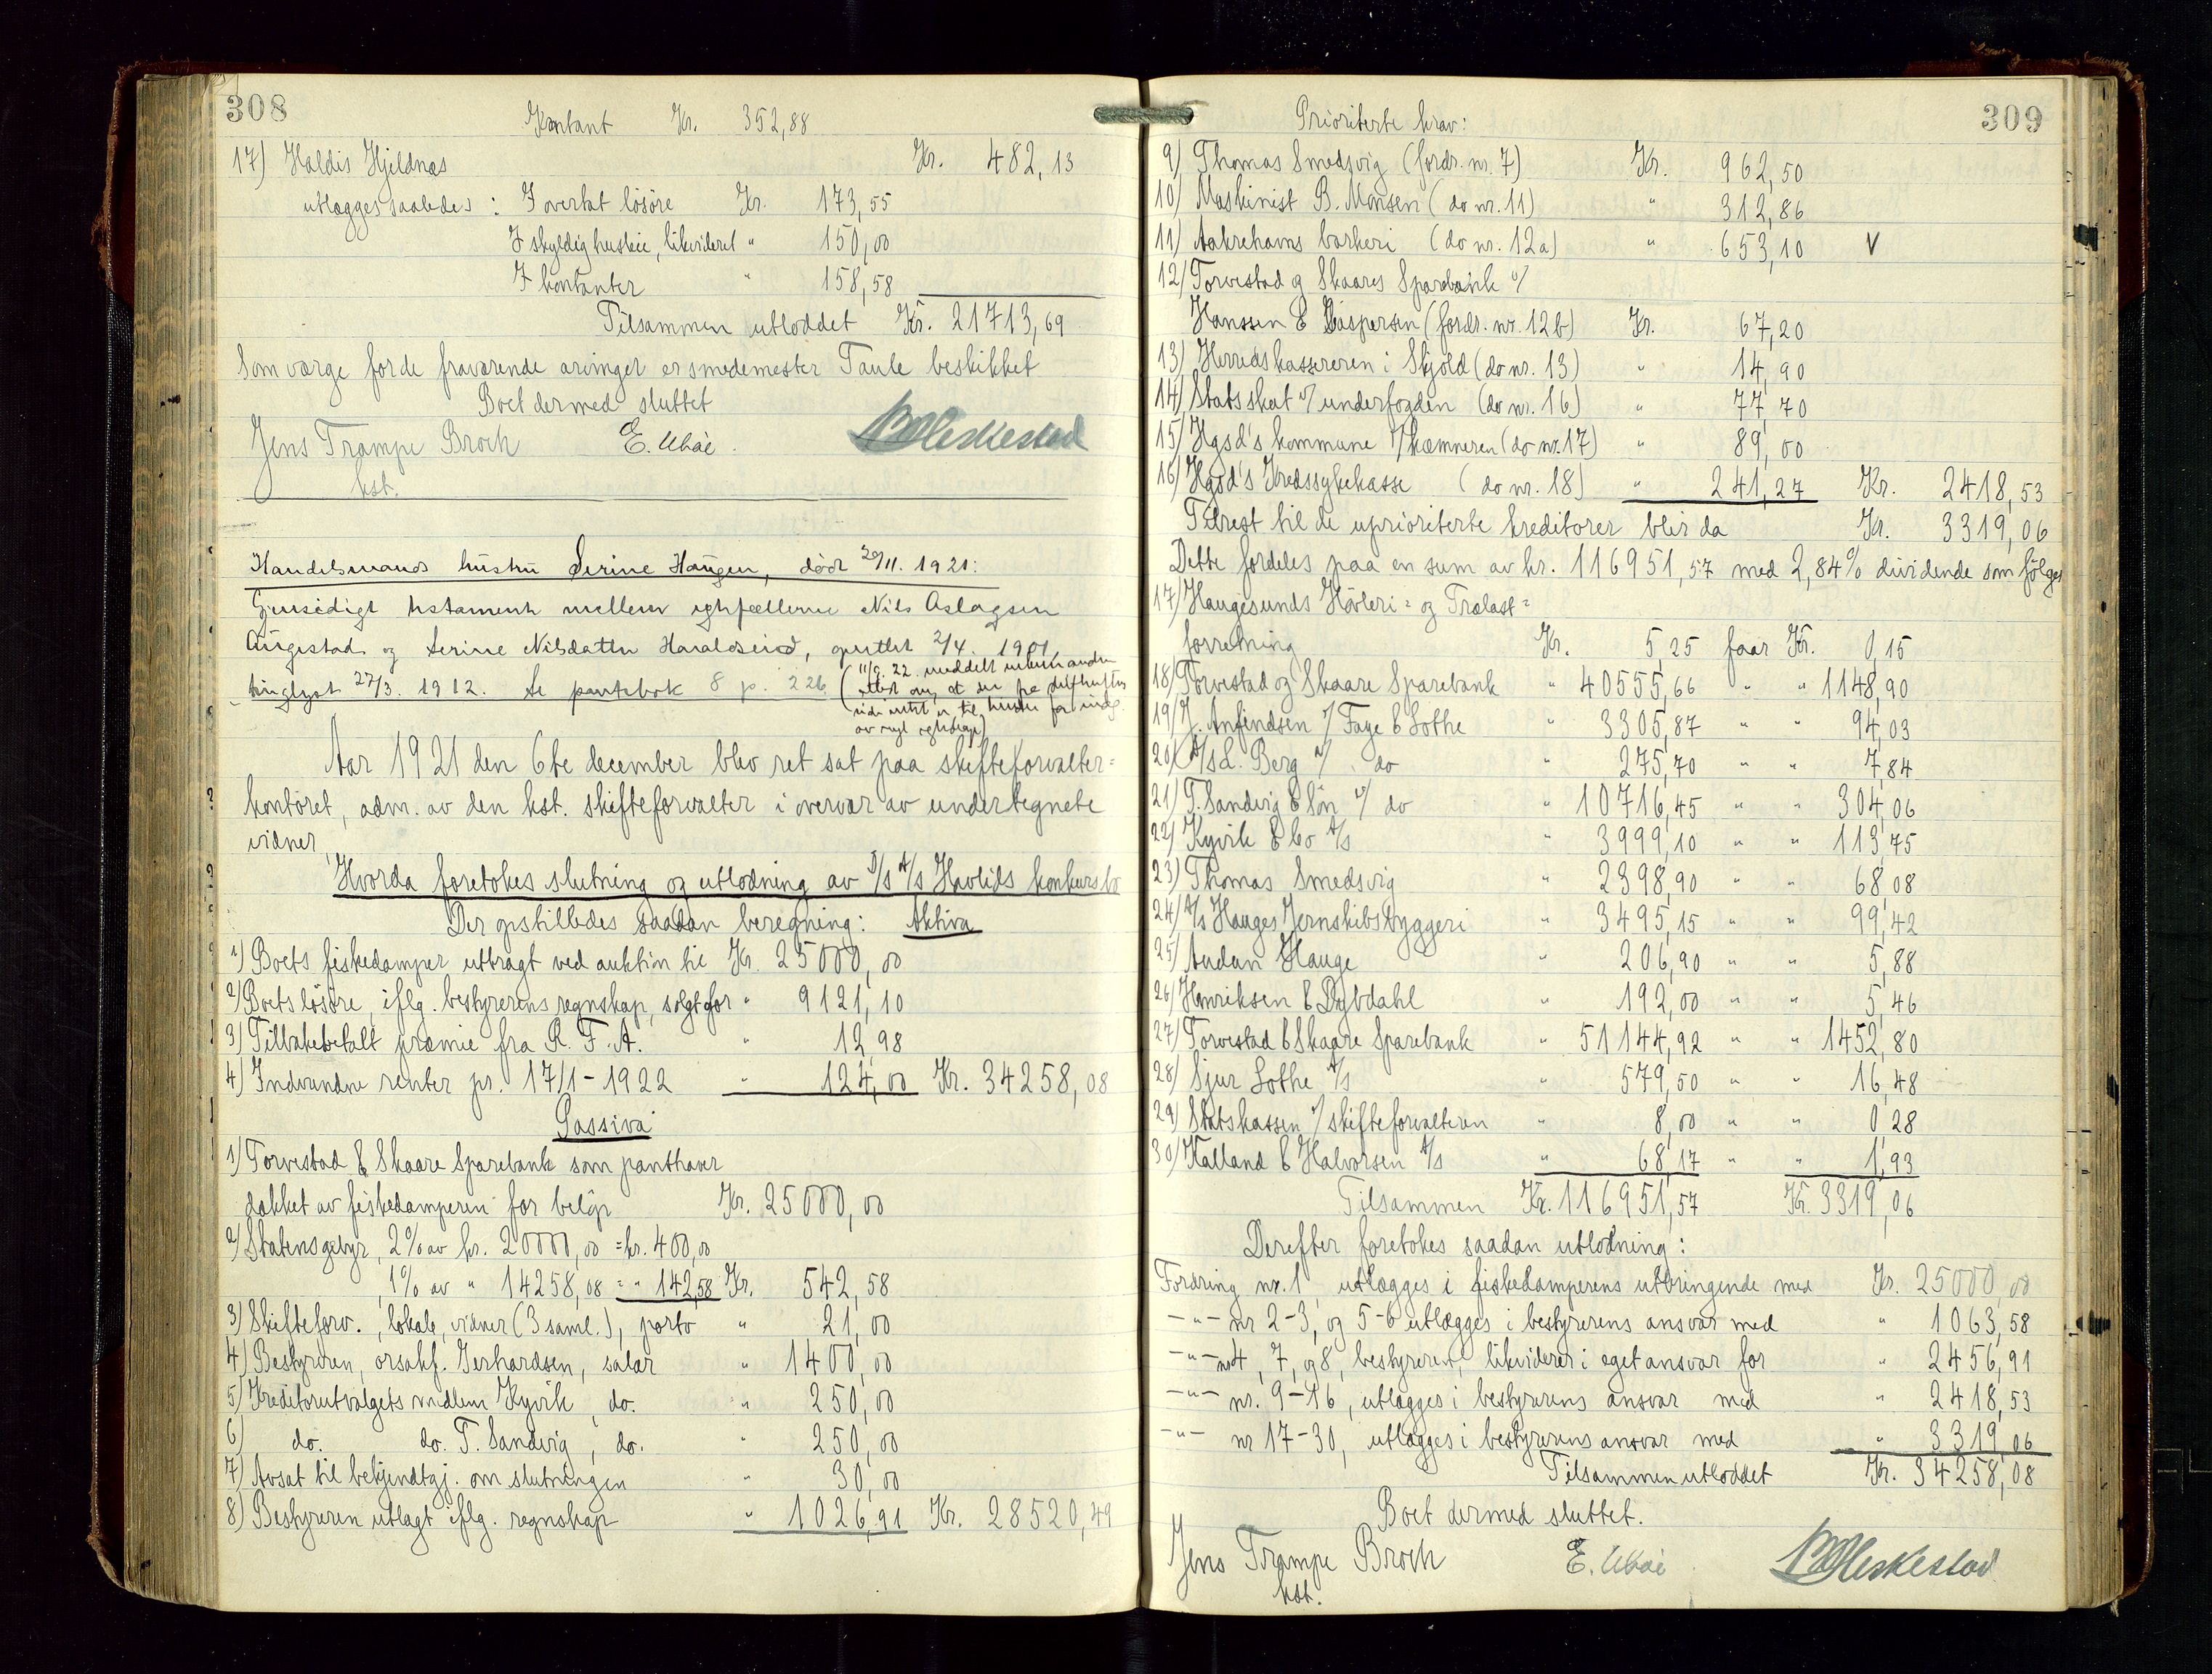 308
Kontant Kr. 352,88
17) Haldis Hjeldnæs Kr. 482,13
utlægges saaledes: I overtat lösöre Kr. 173,55
I skyldig husleie, likvideret " 150,00
I kontanter " 158,58
Tilsammen utloddet Kr. 21713,69
Som værge for de fraværende arvinger er smedemester Taule beskikket
Boet dermed sluttet
Jens Trampe Broch E. Ubøe B Heskestad
kst.
Handelsmands hustru Serine Haugen, död 20/11. 1921:
Gjensidigt testament mellem egtefællerne Nils Aslagsen
Augestad og Serine Nilsdatter Haraldseid, oprettet 2/4. 1901,
tinglyst 27/3. 1912. Se pantebok 8 p. 226
(11/9. 22. meddelt enkemanden
attest om, at der fra skifterettens
side intet er til hinder for indg.
av nyt egteskap)
Aar 1921 den 6te december blev ret sat paa skifteforvalter=
kontoret, adm. av den kst. skifteforvalter i overvær av undertegnete
vidner,
Hvorda foretokes slutning og utlodning av D/S A/S Havlids konkursbo
Der opstilledes saadan beregning: Aktiva
1) Boets fiskedamper utbragt ved auktion til Kr. 25000,00
2) Boets lösöre, iflg. bestyrerens regnskap, solgt for " 9121,10
3) Tilbakebetalt præmie fra R. F. A. " 12,98
4) Indvundne renter pr. 17/1-1922 " 124,00 Kr. 34258,08
Passiva
1) Torvestad & Skaare Sparebank som panthaver
dækket av fiskedamperen for belöp Kr. 25000,00
2) Statens gebyr, 2% av kr. 20000,00 = kr. 400,00
1% av " 14258,08 = " 142,58 Kr. 542,58
3) Skifteforv., lokale, vidner (3 saml.), porto " 21,00
4) Bestyreren, orsakf. Gerhardsen, salær " 1400,00
5) Kreditorutvalgets medlem Kyvik, do. " 250,00
6) do. do. T. Sandvig, do. " 250,00
7) Avsat til bekjendtgj. om slutningen " 30,00
8) Bestyreren utlagt iflg. regnskap " 1026,91 Kr. 28520,49
309
Prioriterte krav:
9) Thomas Smedsvig (fordr. nr. 7) Kr. 962,50
10) Maskinist B. Monsen (do nr. 11) " 312,86
11) Aakrehavns barkeri (do nr. 12a) " 653,10 V
12) Torvestad og Skaares Sparebank v/
Hanssen & Kaspersen (fordr. nr. 12b) Kr. 67,20
13) Herredskassereren i Skjold (do nr. 13) " 14,90
14) Statsskat v/ underfogden (do nr. 16) " 77,70
15) Hgsd's kommune v/ kæmneren (do nr. 17) " 89,00
16) Hgsd's Kredssykekasse (do nr. 18) " 241,27 Kr. 2418,53
Tilrest til de uprioriterte kreditorer blir da Kr. 3319,06
Dette fordeles paa en sum av kr. 116951,57 med 2,84% dividende som fölger
17) Haugesunds Hövleri= og Trælast=
forretning Kr. 5,25 faar Kr. 0,15
18) Torvestad og Skaare Sparebank " 40555,66 " " 1148,90
19) J. Anfindsen v/ Fage & Lothe " 3305,87 " " 94,03
20) A/S L. Berg v/ do " 275,70 " " 7,84
21) T. Sandvig & Sön v/ do " 10716,45 " " 304,06
22) Kyvik & Co A/S " 3999,10 " " 113,75
23) Thomas Smedsvig " 2398,90 " " 68,08
24) A/S Hauges Jernskibsbyggeri " 3495,15 " " 99,42
25) Audun Hauge " 206,90 " " 5,88
26) Henriksen & Dybdahl " 192,00 " " 5,46
27) Torvestad & Skaare Sparebank " 51144,92 " " 1452,80
28) Sjur Lothe A/S " 579,50 " " 16,48
29) Statskassen v/ skifteforvalteren " 8,00 " " 0,28
30) Kalland & Halvorsen A/S " 68,17 " " 1,93
Tilsammen Kr. 116951,57 Kr. 3319,06
Derefter foretokes saadan utlodning:
Fordring nr. 1 utlægges i fiskedamperens utbringende med Kr. 25000,00
-"- nr 2-3, og 5-6 utlægges i bestyrerens ansvar med " 1063,58
-"- nr 4, 7, og 8, bestyreren, likviderer i eget ansvar for " 2456,91
-"- nr. 9-16, utlægges i bestyrerens ansvar med " 2418,53
-"- nr 17-30, utlægges i bestyrerens ansvar med " 3319,06
Tilsammen utloddet Kr. 34258,08
Boet dermed sluttet.
Jens Trampe Broch E. Ubøe B Heskestad
kst.